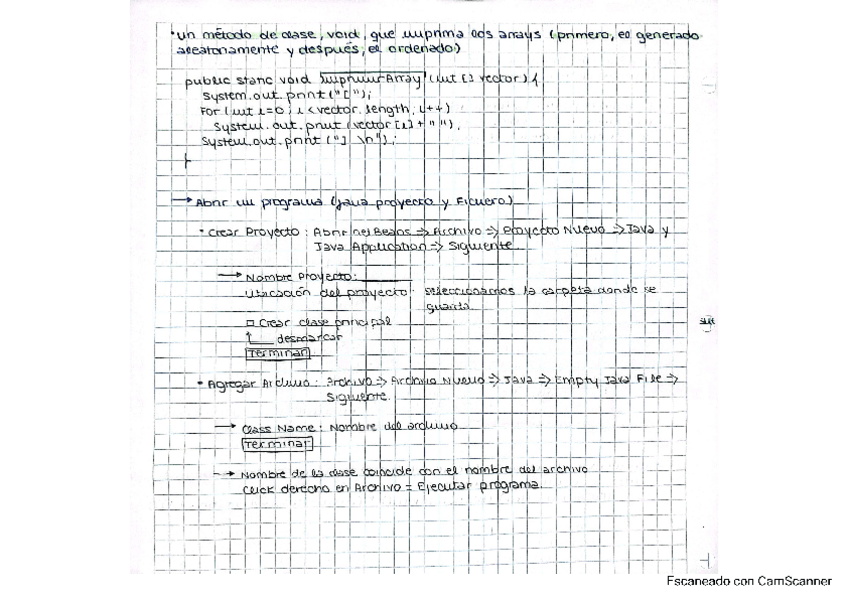 • un método de clase, void, que imprima los arrays (primero, el generado
aleatoriamente y después, el ordenado)
public static void imprimirArray (int [] vector) {
System.out.print ("[");
For (int i=0; i < vector.length; i++)
System.out.print (vector [i] + " ");
System.out.print ("] \n");
}
→ Abrir un programa (Java proyecto y Fichero)
• Crear Proyecto: Abrir netBeans ⇒ Archivo ⇒ Proyecto Nuevo ⇒ Java y
Java Application ⇒ Siguiente
→ Nombre Proyecto:
Ubicación del proyecto: seleccionamos la carpeta donde se
guarda
□ Crear clase principal
desmarcar
Terminar
• Agregar Archivo: Archivo ⇒ Archivo Nuevo ⇒ Java ⇒ Empty Java File ⇒
Siguiente.
→ Class Name: Nombre del archivo
Terminar
→ Nombre de la clase coincide con el nombre del archivo
Click derecho en Archivo = Ejecutar programa.
Escaneado con CamScanner